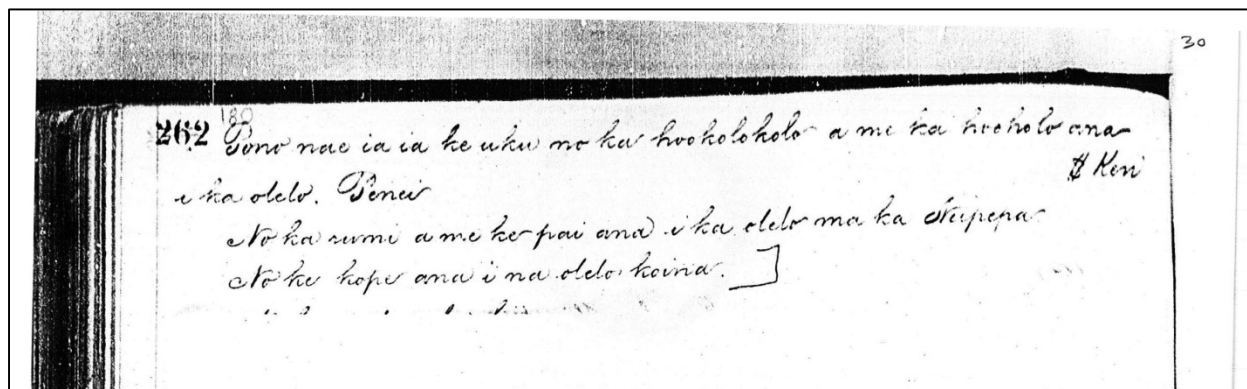 30
180
262 Pono nae ia ia ke uku no ka hookolokolo a me ka hooholo ana
i ka olelo. Penei
H Keni
No ka rumi a me ke pai ana i ka olelo ma ka Nupepa
No ke kope ana i na olelo koina. ]